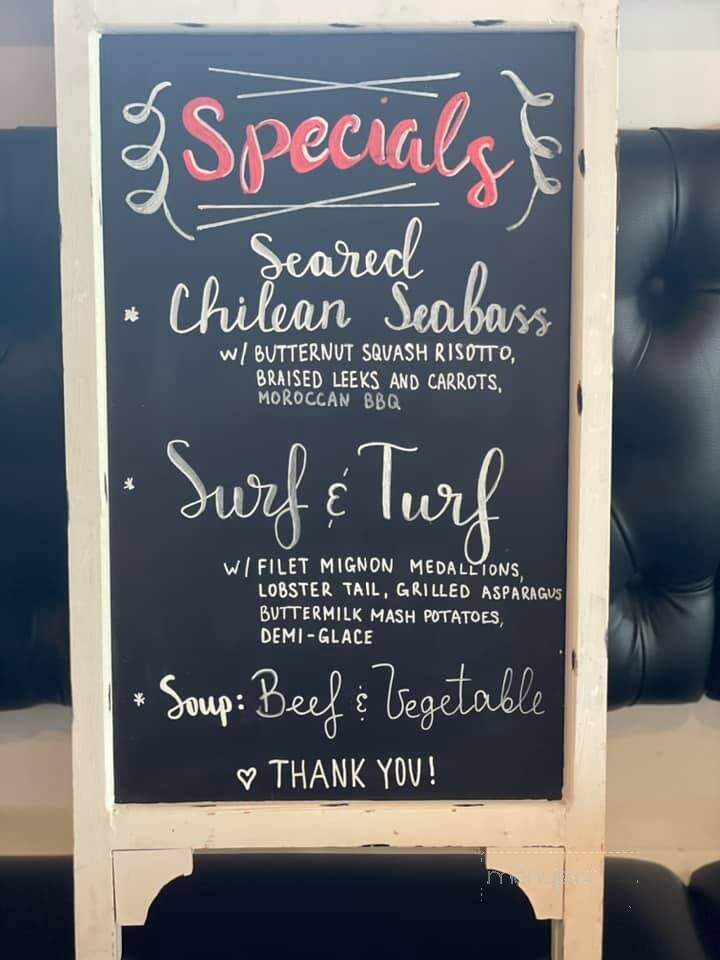 Specials
Seared
* Chilean Seabass
w/ BUTTERNUT SQUASH RISOTTO,
BRAISED LEEKS AND CARROTS,
MOROCCAN BBQ
* Surf & Turf
w/ FILET MIGNON MEDALLIONS,
LOBSTER TAIL, GRILLED ASPARAGUS
BUTTERMILK MASH POTATOES,
DEMI-GLACE
* Soup: Beef & Vegetable
♡ THANK YOU!